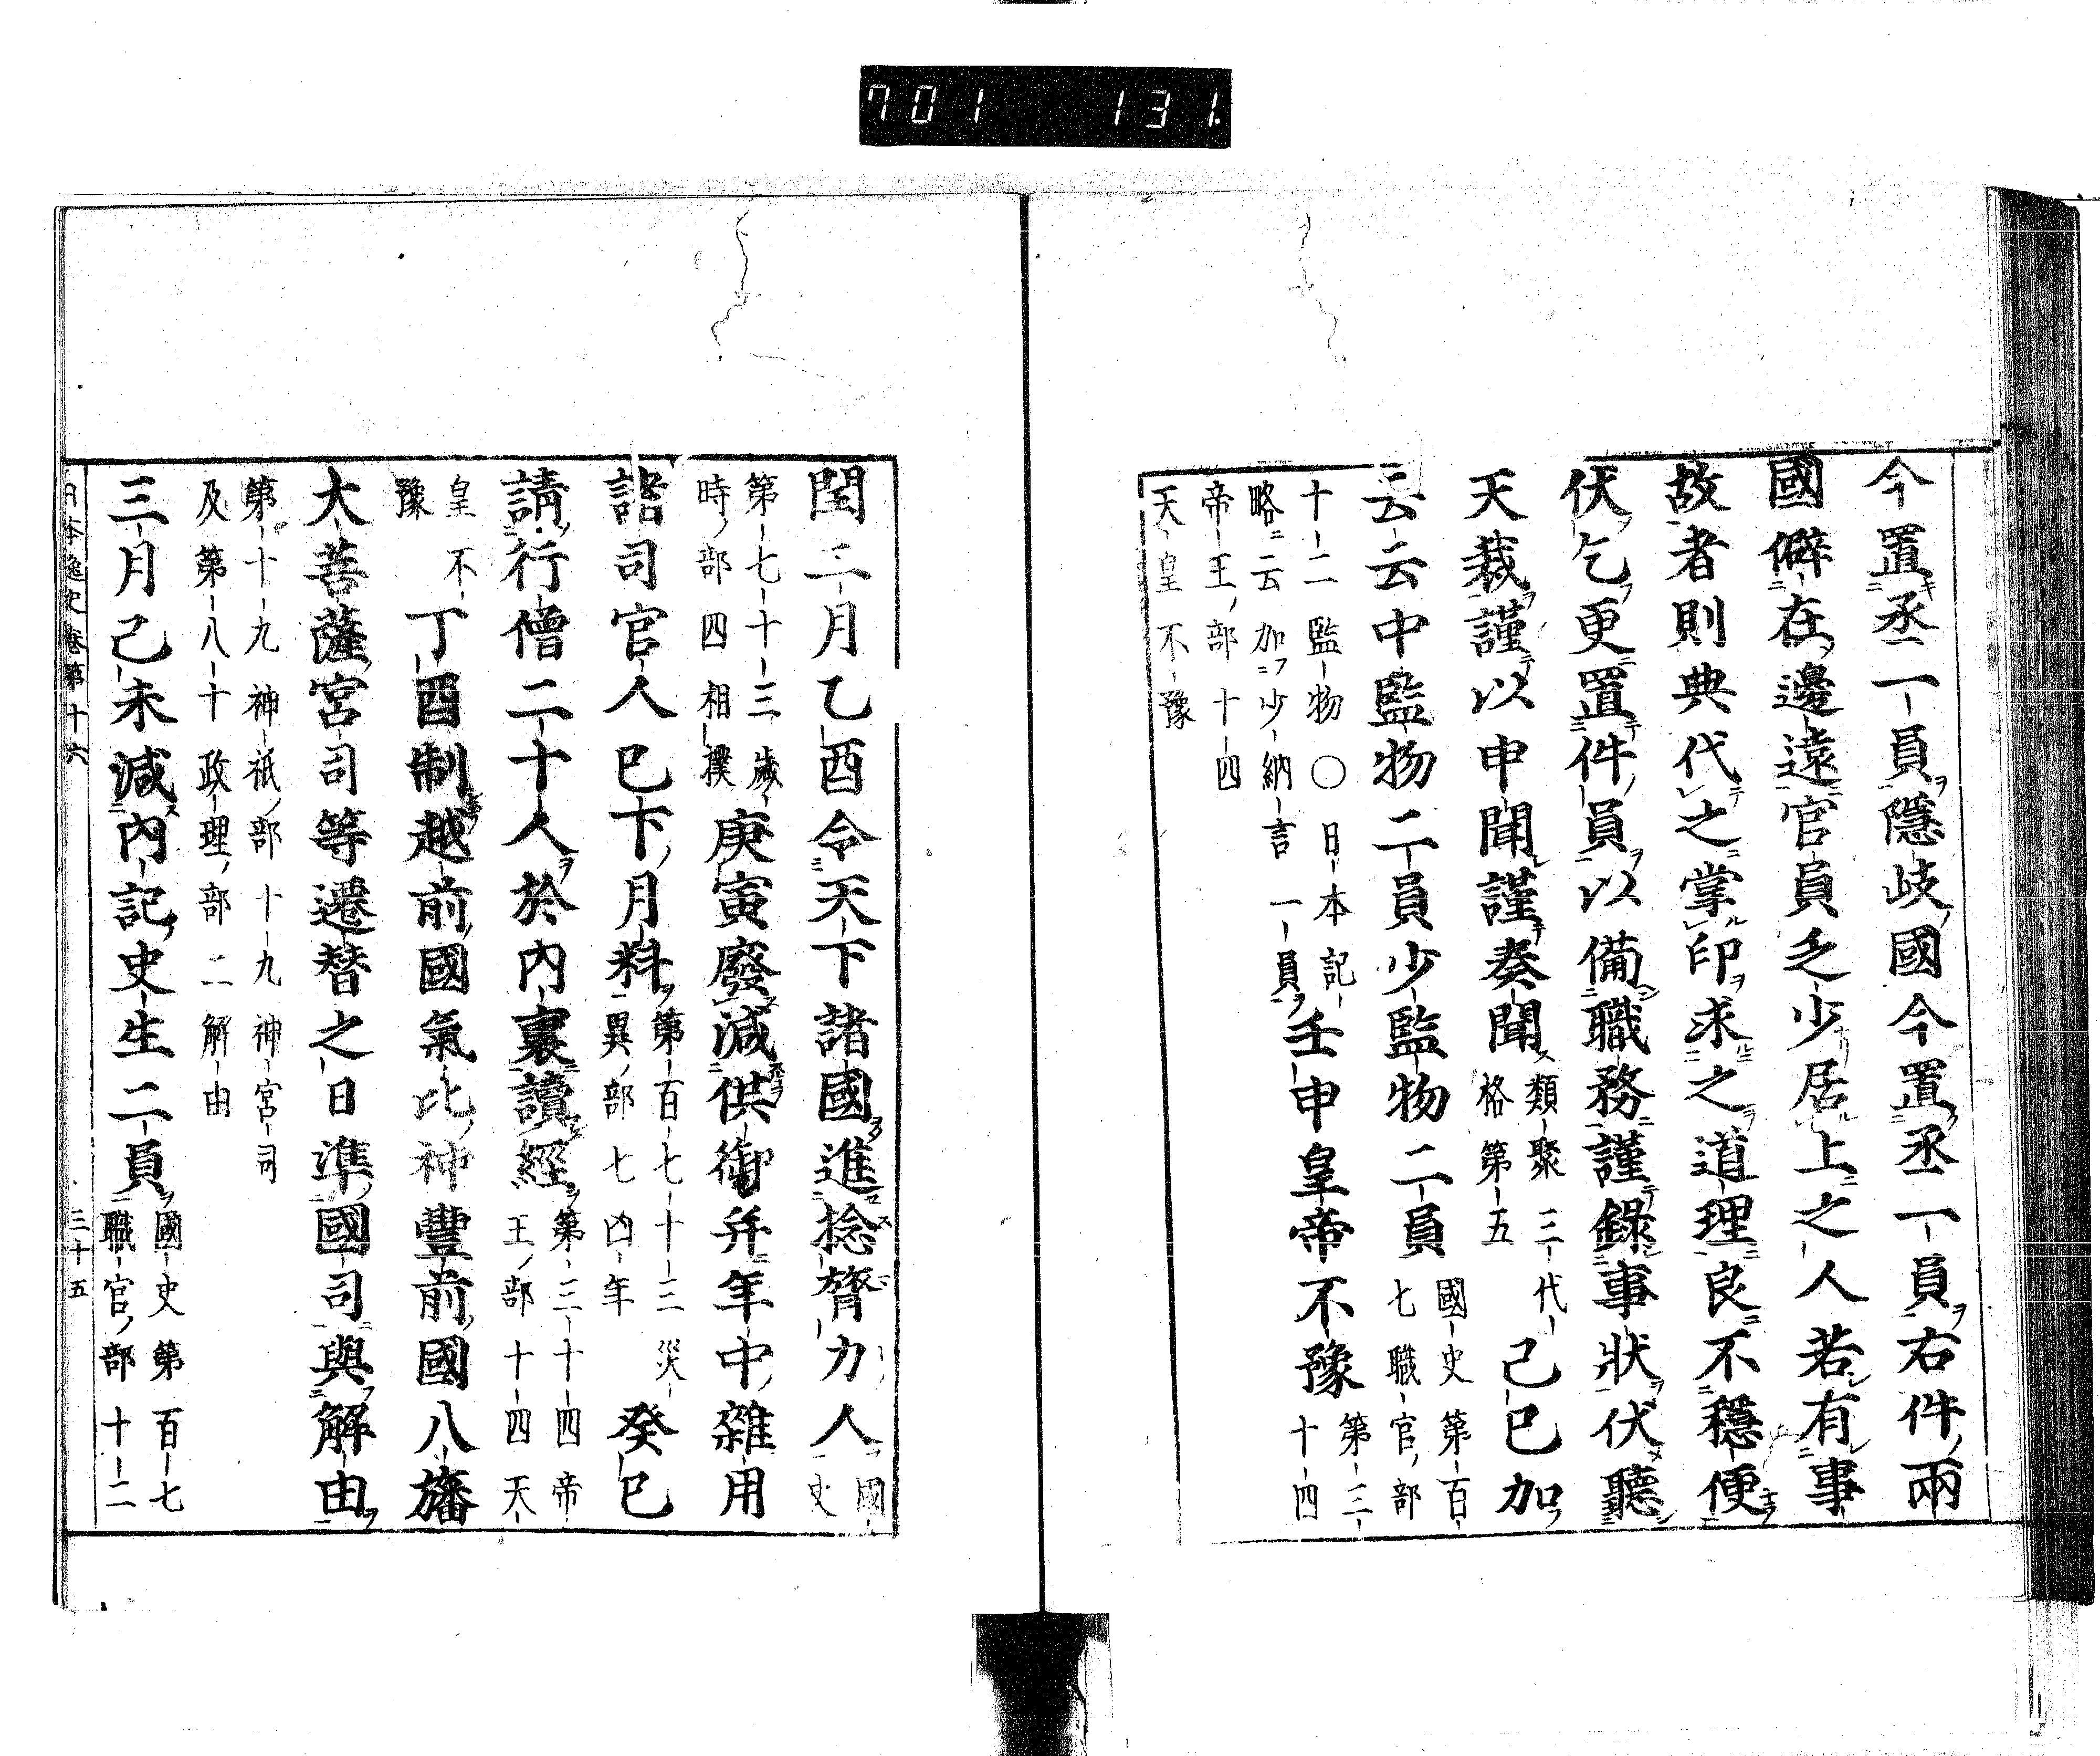 701 131.
今置丞一員隱岐國今置丞一員右件兩
國僻在邊遠官員乏少居上之人若有事
故者則典代之掌印求之道理良不穩便
伏乞更置件員以備職務謹錄事狀伏聽
天裁謹以申聞謹奏聞
類聚三代
格第五
己巳加
云云中監物二員少監物二員
國史第百
七職官部
十二監物〇日本記
略云加少納言一員
壬申皇帝不豫
第三
十四
帝王部十四
天皇不豫
閏二月乙酉令天下諸國進捻膂力人
國
史
第七十三歲
時部四相撲
庚寅廢減供御并年中雜用
諸司官人已下月料
第百七十三災
異部七凶年
癸巳
請行僧二十人於內裏讀經
第三十四帝
王部十四天
皇不
豫
丁酉制越前國氣比神豐前國八旛
大菩薩宮司等遷替之日準國司與解由
第十九神祇部十九神宮司
及第八十政理部二解由
三月己未減內記史生二員
國史第百七
職官部十二
日本逸史卷第十六 三十五